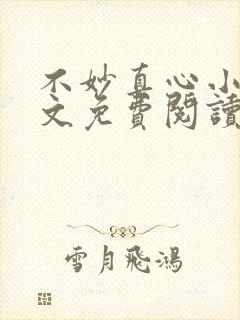 不妙直心小
文免費閱讀
雪月飛鴻